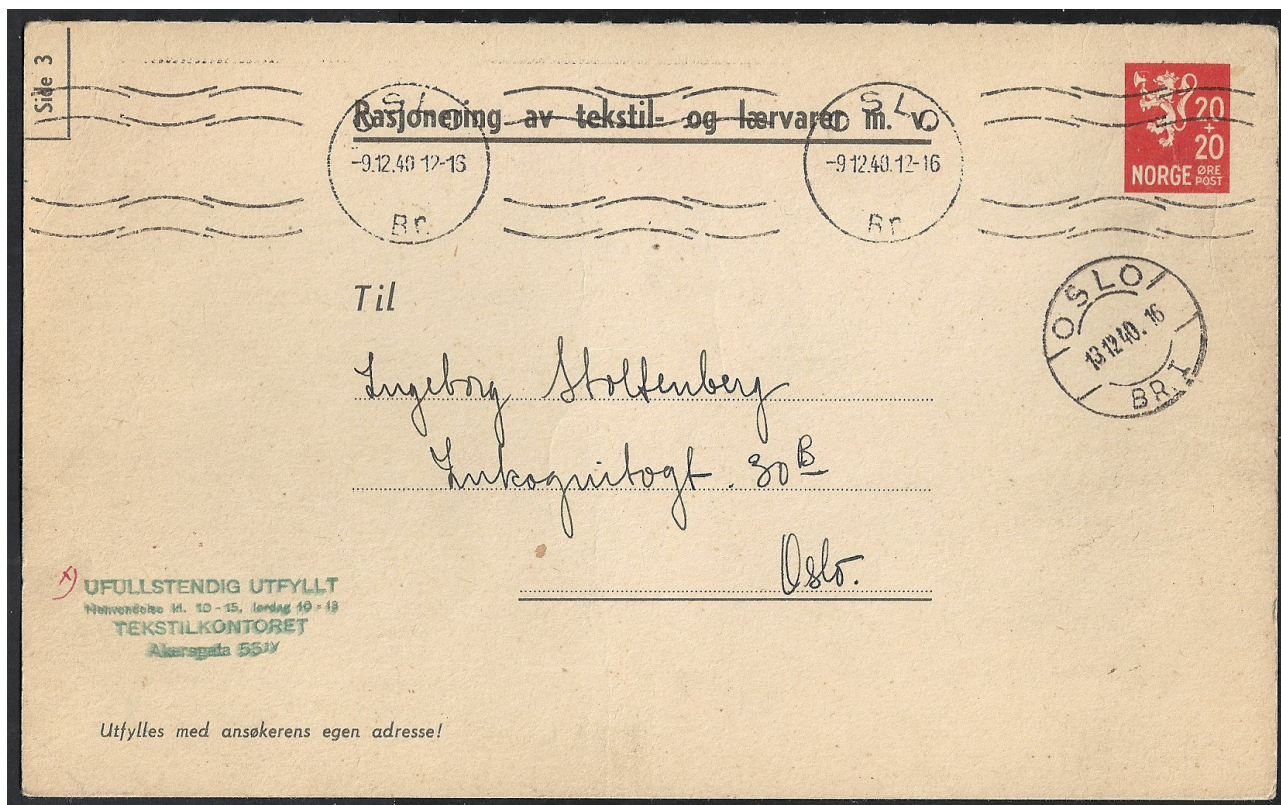 Side 3
Rasjonering av tekstil- og lærvarer m. v.
OSLO
-9.12.40 12-16
Br.
OSLO
-9.12.40.12-16
Br.
20
+
20
NORGE ØRE POST
OSLO
13.12.40. 16
BR. I
Til
Ingeborg Stoltenberg
Inkognitogt. 30B
Oslo.
x)
UFULLSTENDIG UTFYLLT
Henvendelse kl. 10-15, lørdag 10-13
TEKSTILKONTORET
Akersgata 55IV
Utfylles med ansøkerens egen adresse!